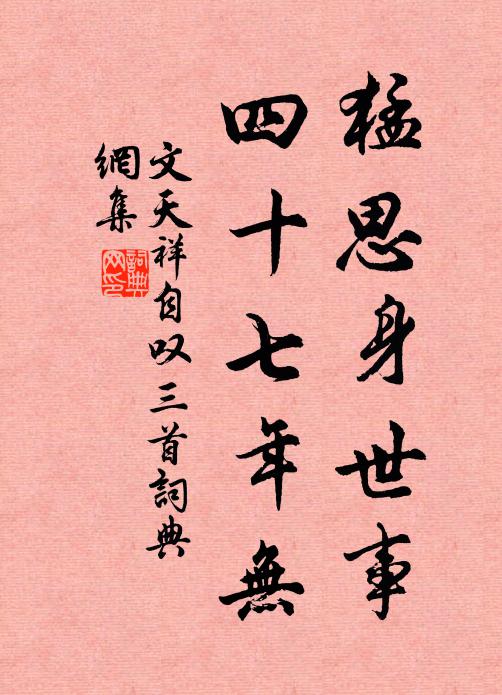 猛思身世事
四十七年無
文天祥自叹三首詞典
網集
詞典
网印